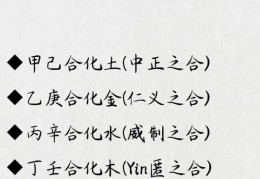 ◆甲己合化土(中正之合)
◆乙庚合化金(仁义之合)
◆丙辛合化水(威制之合)
◆丁壬合化木(Yin匿之合)